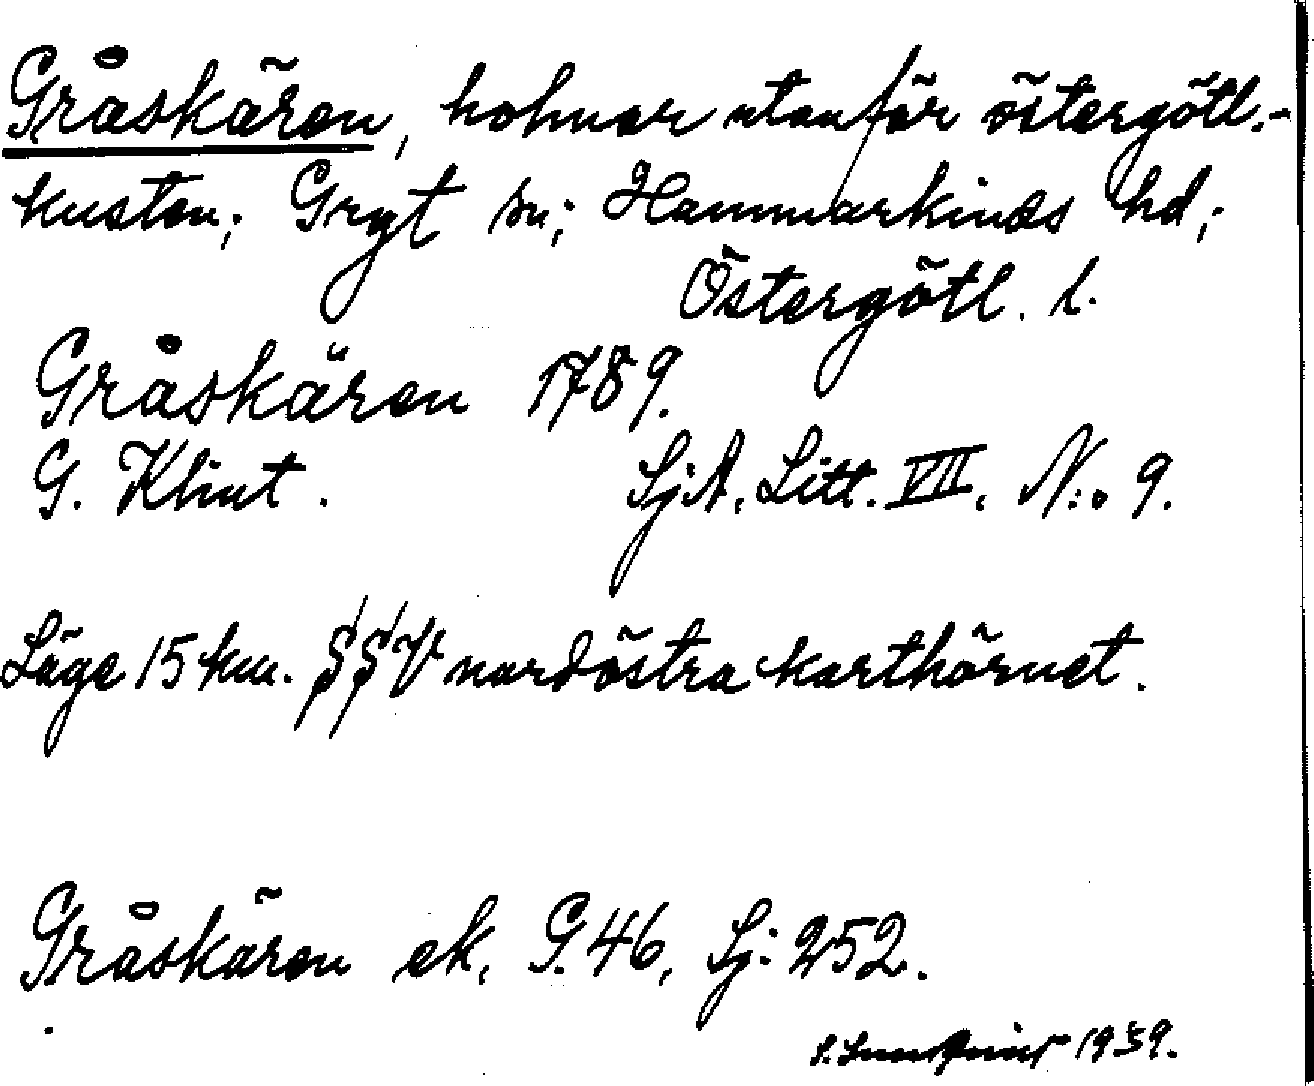 Gråskären, holmar utanför östergötl.-
kusten; Gryt sn; Hammarkinds hd;
Östergötl. l.
Gråskären 1789.
G. Klint. SjA. Litt. VII. N:o 9.
Läge 15 km. SSV nordöstra karthörnet.
Gråskären ek. G. 46, Sj: 252.
1939.